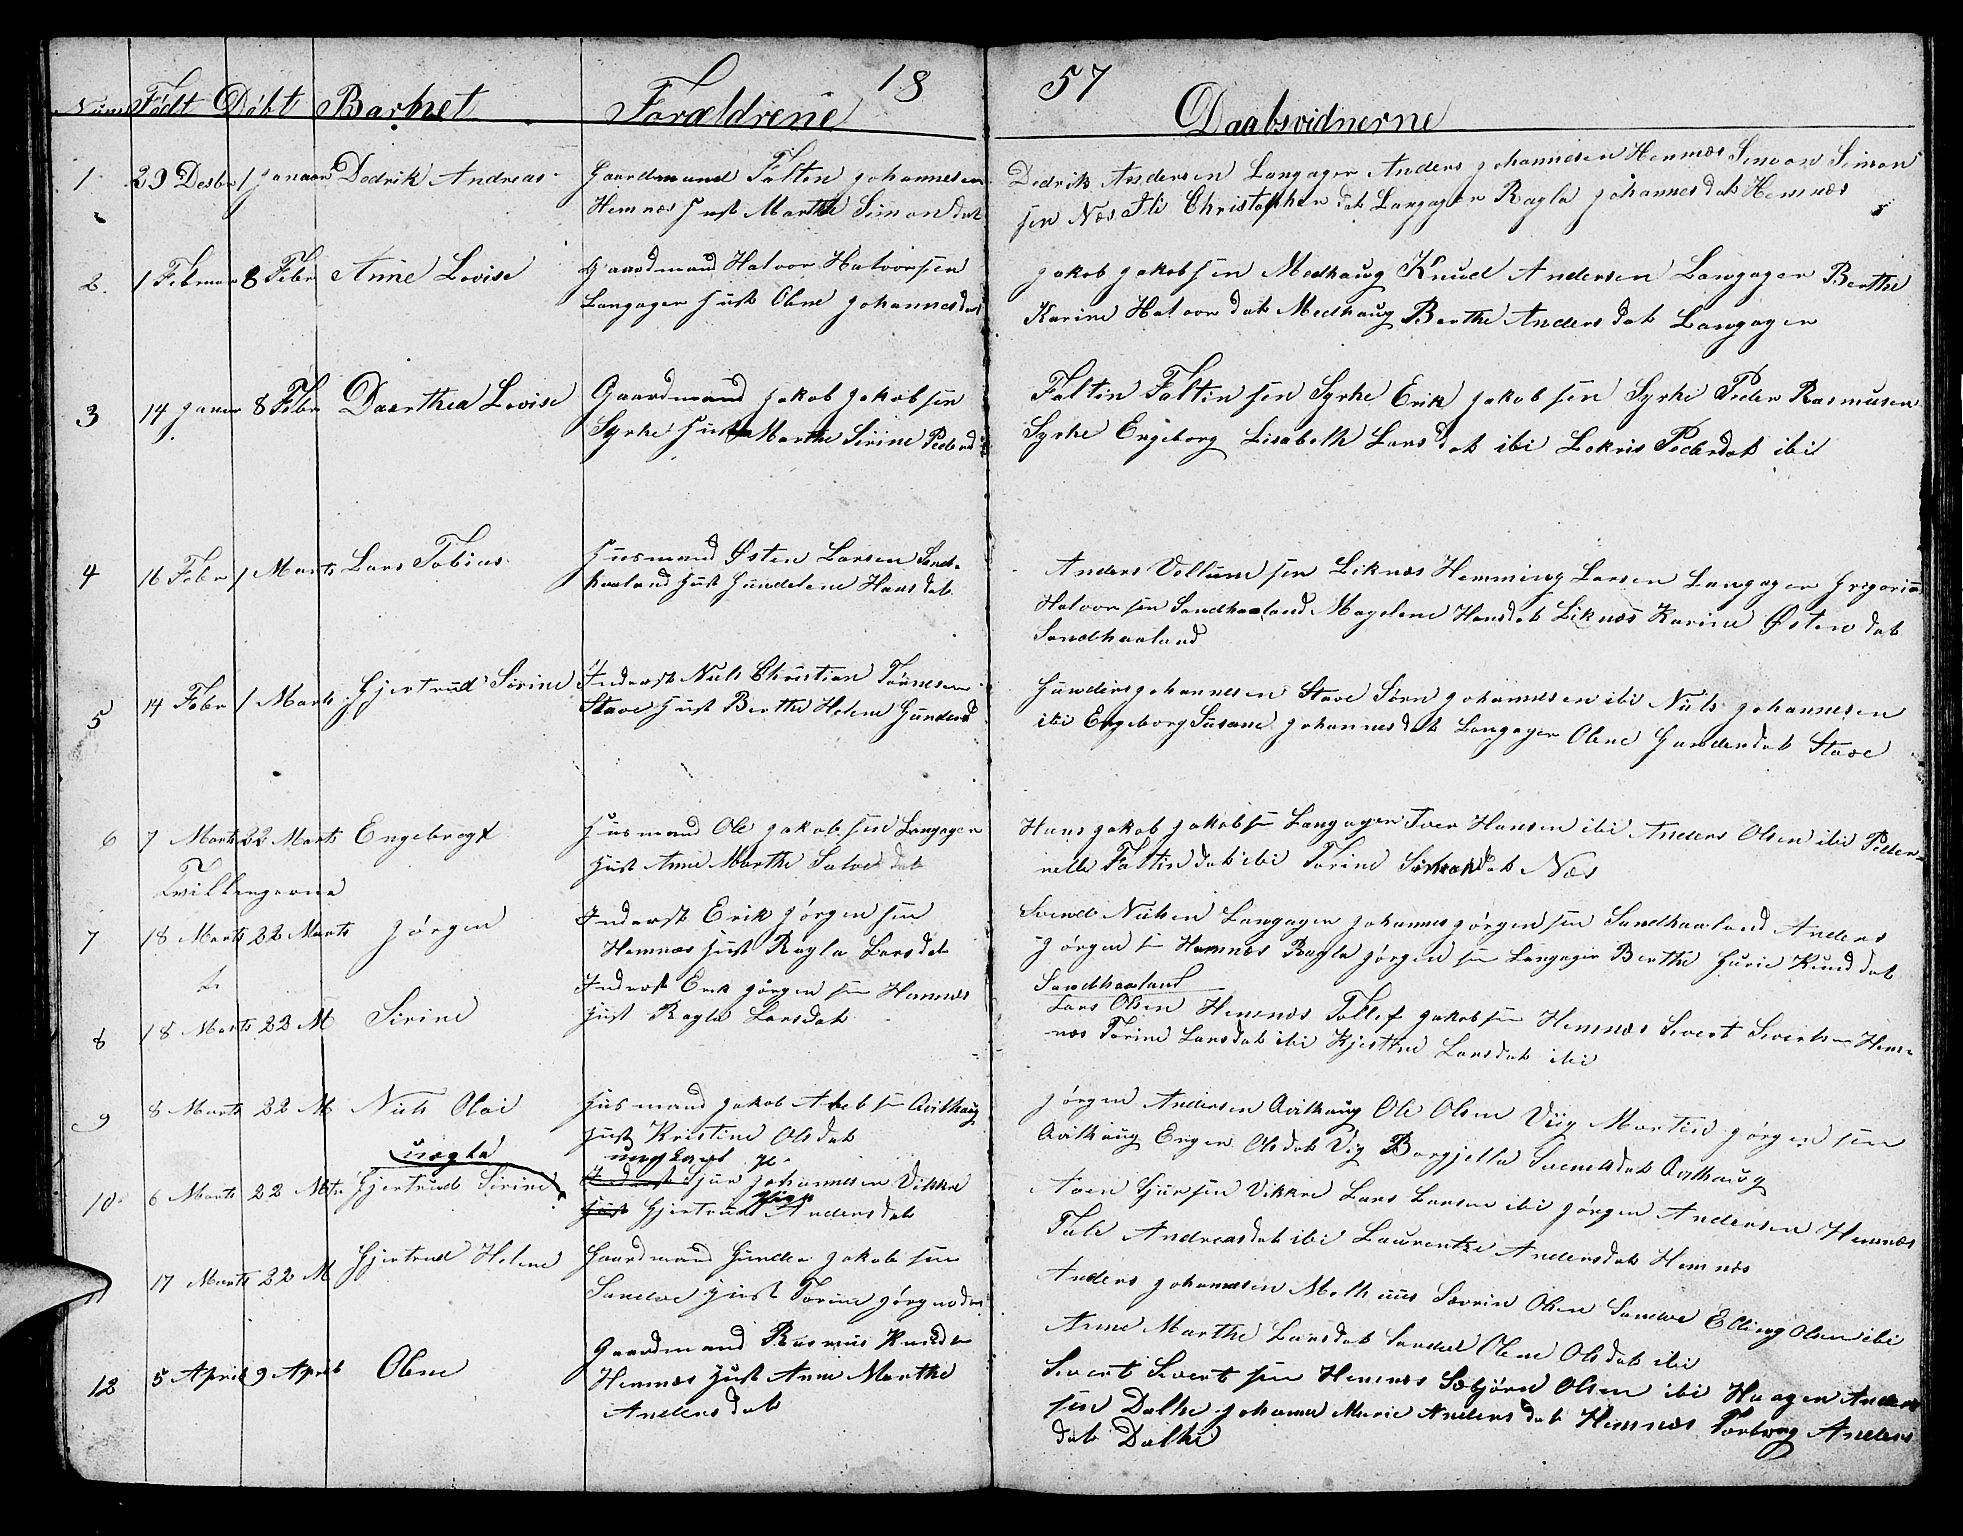 18 57
Num Født Døbt Barnet Forældrene Daabsvidnerne
1 29 Desbr 1 Januar Dedrik Andreas Gaardmand Faltin Johannesen
Hemnæs Hust Marthe Simondat
Dedrik Andersen Langager Anders Johannesen Hemnæs Simon Simon
sen Næs Christopherdat Langager Ragla Johannesdat Hemnæs
2. 1 Februar 8 Febr Anne Lovise Gaardmand Halvor Halvorsen
Langager Hust Oline Johannesdat
Jakob Jakobsen Medhaug Knud Andersen Langager Berthe
Karine Halvordat Medhaug Berthe Andersdat Langager
3 14 Januar 8 Febr Daarthea Lovise Gaardmand Jakob Jakobsen
Syrke Hust Marthe Sirine Pedersd
Faltin Faltinsen Syrke Erik Jakobsen Syrke Peder Rasmusen
Syrke Engeborg Lisabeth Larsdat ibi Pedersdat ibi
4 16 Febr 1 Marts Lars Tobias Husmand Østen Larsen Sand-
haaland Hust Gundelene Hansdat
Anders Vellumsen Liknæs Hemming Larsen Langager
Halvorsen Sandhaaland Magelene Hansdat Liknæs Karine Østendat
Sandhaaland
5 14 Febr 1 Marts Gjertrud Sirine Inderst Niels Christian
Stave Hust Berthe Helene Gundersd
Gunder Johannesen Stave Sørn Johannesen ibi Niels Johannesen
ibi Engeborg Susane Johannesdat Langager Oline Gundersdat Stave
6 7 Marts 22 Marts Engebregt Husmand Ole Jakobsen Langager
Hust Anne Marthe
Hans Jakob Jakobsen Langager Iver Hansen ibi Anders Olsen ibi Peder-
nelle Faltindat ibi Torine Simondat Næs
Tvillengerne
7 18 Marts 22 Marts Jørgen Inderst Erik Jørgensen
Hemnæs Hust Ragla Larsdat
Svend Nielsen Langager Johannes Jørgensen Sandhaaland Anders
Jørgensen Hemnæs Ragla Jørgensen Langager Berthe Gurie Knudsdat
Sandhaaland
8 18 Marts 22 M Sirine Inderst Erik Jørgensen Hemnæs
Hust Ragla Larsdat
Lars Olsen Hemnæs Tollef Jakobsen Hemnæs Sivert Sivertsen Hem-
næs Torine Larsdat ibi Kjestine Larsdat ibi
9 8 Marts 22 M Niels Olai Husmand Jakob Avilhaug
Hust Kristine Olsdat
Jørgen Andersen Avilhaug Ole Olsen Viig Martin Jørgensen
Avilhaug Enger Olsdat Vig Borgjella Svendsdat Avilhaug
uægte ungkarl
10. 6 Marts 22 Mts Gjertrud Sirine Inderst Sjur Johannesen Vikke
Hust Gjertrud Pige Andersdat
Aven Sjursen Vikke Lars Larsen ibi Jørgen Andersen Hemnæs
Tale Andreasdat ibi Laurentze Andersdat Hemnæs
11 17 Marts 22 M Gjertrud Helene Gaardmand Gunder Jakobsen
Sandve Hust Torine Jørgensdat
Anders Johannesen Melhuus Sævrin Olsen Sandve Elling Olsen ibi
Anne Marthe Larsdat Sandve Oline Olsdat ibi
12 5 April 9 April Oline Gaardmand Rasmus Knudsen
Hemnæs Hust Anne Marthe
Andersdat
Sivert Sivertsen Hemnæs Sebjørn Olsen ibi Haagen Anders
sen Dalke Johanne Marie Andersdat Hemnæs Torborg Anders
dat Dalke